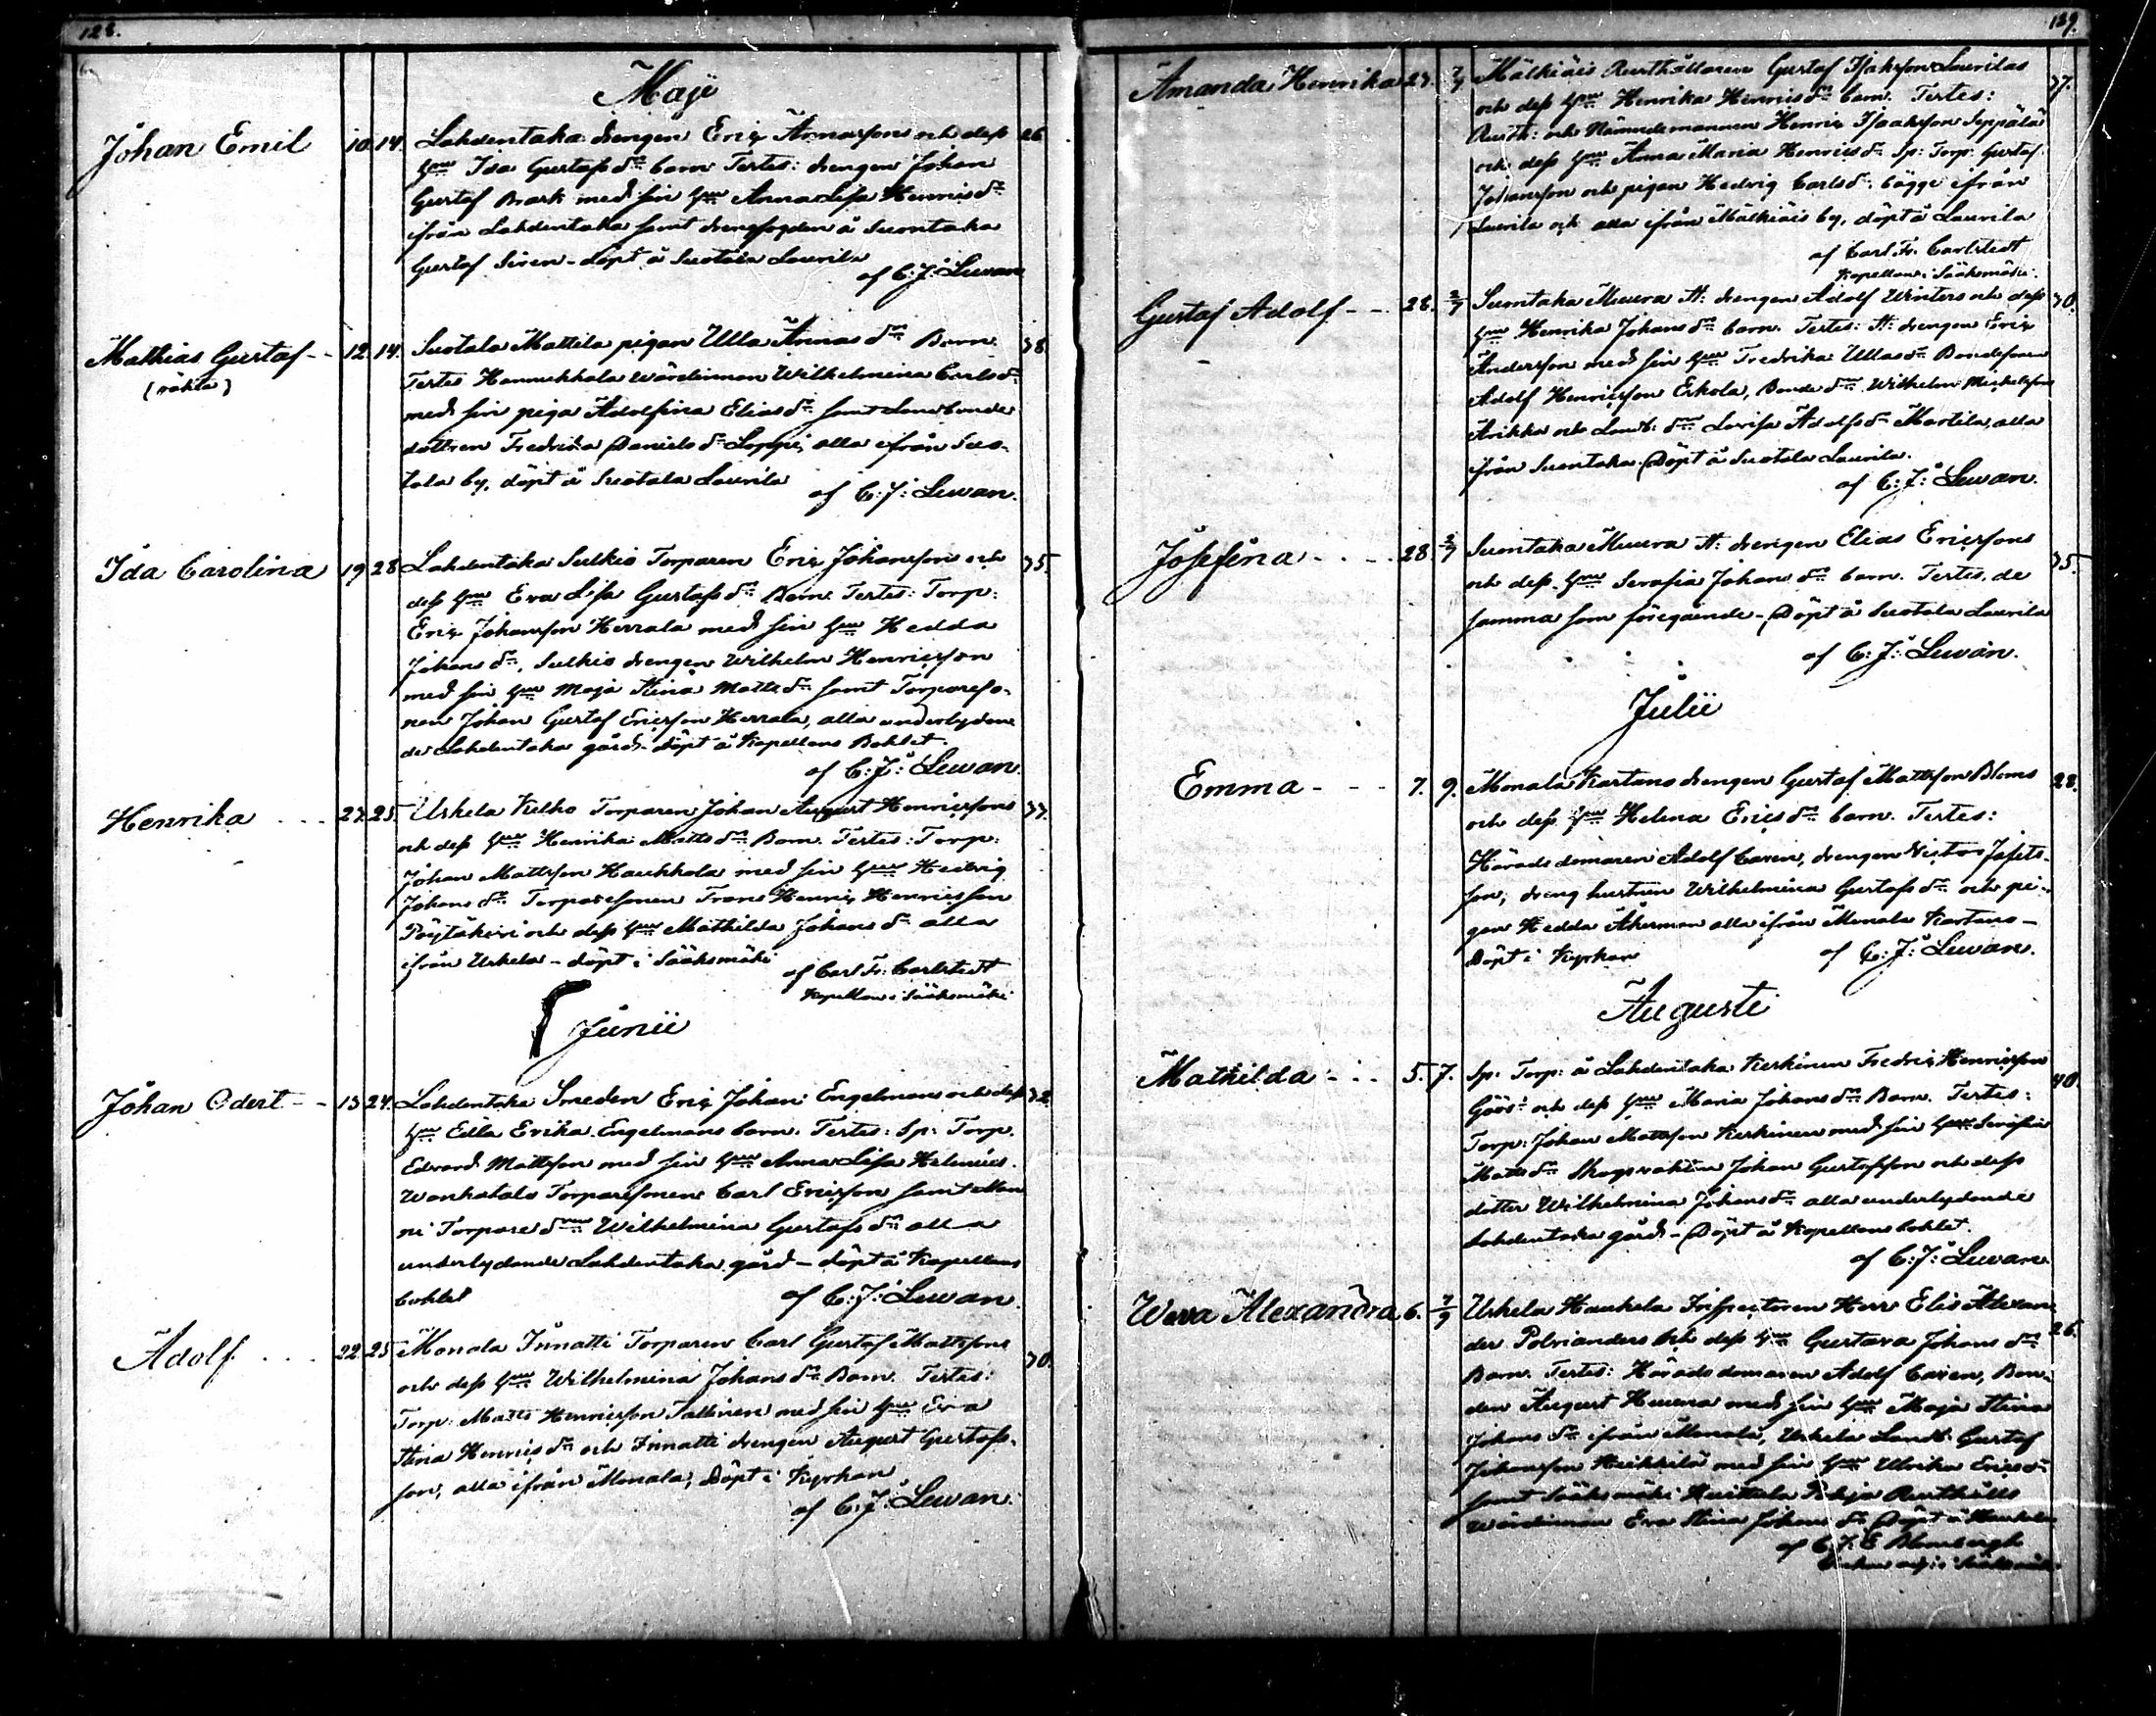 128.
Maji
Johan Emil 10. 14. Lahdentaka drengen Eric Annasons och dess 26
hu Ida Gustafs dr barn Testes: drengen Johan
Gustaf Brask med sin hu Anna Lisa Henrics dr
ifrån Lahdentaka samt drengfogden å Suontaka
Gustaf Siren - döpt å Suotala Laurila
af C: J: Lewan
Mathias Gustaf -- 12. 14. Suotala Mattila pigan Ulla Annas dr Barn 38.
(oäkta) Testes Hannukkala Wärdinnan Wilhelmina Carls dr
med sin piga Adolfina Elias dr samt Landbonde
dottren Fredrika Daniels dr Loppi, alla ifrån Suo-
tala by, döpt å Suotala Laurila
af C: J: Lewan.
Ida Carolina 19 28 Lahdentaka Sulkio Torparen Eric Johansson och 35.
dess hu Eva Lisa Gustafs dr Barn. Testes: Torp:
Eric Johansson Herrala med sin hu Hedda
Johans dr, Sulkio drengen Wilhelm Henricsson
med sin hu Maja Stina Matts dr samt Torpareso-
nen Johan Gustaf Ericsson Herrala, alla underlydan-
de Lahdentaka gård - döpt å Kapellans Bohlet.
af C: J: Lewan.
Henrika ... 23. 25. Urhela Kulho Torparen Johan August Henricssons 33.
och dess hu Henrika Matts dr Barn. Testes: Torp:
Johan Mattsson Haukkola med sin hu Hedvig
Johans dr Torparesonen Frans Henric Henricsson
Pöytäkivi och dess hu Mathilda Johans dr alla
ifrån Urhela - döpt i Sääksmäki
af Carl Fr: Carlstedt
Kapellan i Sääksmäki
Junii
Johan Odert -- 13 24. Lahdentaka Smeden Eric Johan Engelmans och dess 32
hu Edla Erika Engelmans barn. Testes: Sp: Torp.
Edvard Mattsson med sin hu Anna Lisa Helenius.
Wanhatalo Torparesonen Carl Ericsson samt Man
ni Torpare dr Wilhelmina Gustafs dr alla
underlydande Lahdentaka gård - döpt å Kapellans
bohlet af C: J: Lewan.
Adolf ... 22. 25 Monala Innatti Torparen Carl Gustaf Mattssons 30.
och dess hu Wilhelmina Johans dr Barn. Testes:
Torp: Matts Henricsson Tallinen med sin hu Eva
Stina Henrics dr och Innatti drengen August Gustafs-
son, alla ifrån Monala; Döpt i Kyrkan
af C: J: Lewan.
129.
Amanda Henrika 23. 7/7 Mälkiäis Rusthållaren Gustaf Isaksson Laurilas 37.
och dess hu Henrika Henrics dr barn. Testes:
Rusth: och Nämndemannen Henric Isaaksson Seppälä
och dess hu Anna Maria Henrics dr Sp: Torp: Gustaf
Johansson och pigan Hedvig Carls dr bägge ifrån
Laurila och alla ifrån Mälkiäis by, döpt å Laurila
af Carl Fr. Carlstedt
Kapellan i Sääksmäki.
Gustaf Adolf -- 28. 2/7 Suontaka Muura St: drengen Adolf Winters och dess 30.
hu Henrika Johans dr barn. Testes: St: drengen Eric
Andersson med sin hu Fredrika Ullas dr Bondesonen
Adolf Henricsson Erkola, Bonde dr Wilhelm Michelsson
Arikka och Landb: dr Lovisa Adolfs dr Martila, alla
ifrån Suontaka. Döpt å Suotala Laurila.
af C: J: Lewan.
Josefina ... 28. 2/7 Suontaka Muura St: drengen Elias Ericssons 35.
och dess hu Serafia Johans dr barn. Testes, de
samma som föregående - Döpt å Suotala Laurila
af C: J: Lewan.
Julii
Emma --- 7. 9. Monala Kartano drengen Gustaf Mattsson Bloms 28.
och dess hu Helena Erics dr barn. Testes:
Häradsdomaren Adolf Caren, drengen Victor Josefs-
son, dreng hustrun Wilhelmina Gustafs dr och pi-
gan Hedda Åkerman alla ifrån Monala Kartano -
Döpt i Kyrkan af C: J: Lewan.
Augusti
Mathilda -.. 5. 7. Sp: Torp: å Lahdentaka Keskinen Fredric Henricsson 40.
Göös och dess hu Maria Johans dr Barn. Testes:
Torp: Johan Mattsson Keskinen med sin hu Serafia
Matts dr Skogsvakten Johan Gustafsson och dess
dotter Wilhelmina Johans dr alla underlydande
Lahdentaka gård - Döpt å Kapellans bohlet.
af C: J: Lewan.
Wera Alexandra 6. 7/9 Urhela Haukela Inspectoren Herr Elis Alexan 26.
der Polvianders och dess hu Gustava Johans dr
Barn. Testes: Häradsdomaren Adolf Caren, Bon-
den August Huuna med sin hu Maja Stina
Johans dr ifrån Monala, Urhela Landb: Gustaf
Johansson Heikkilä med sin hu Ulrika Erics dr
samt Sääksmäki Rusthålls
Wärdinnan Eva Stina Johans dr Döpt å Haukela
af C. J. E. Blombergh
i Sääksmäki